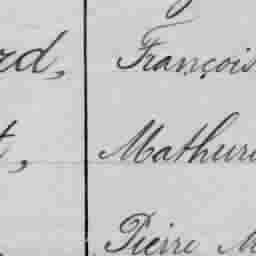 rd, François
t, Mathuri
Pierre M